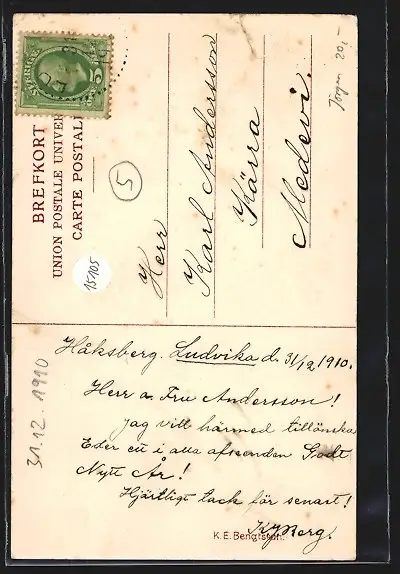 BREFKORT
UNION POSTALE UNIVER
CARTE POSTALE
SVERIGE
5
Herr
Karl Andersson
Kärra
Medevi.
Jörgen 20,-
5
15105
31.12.1910
Håksberg. Ludvika d. 31/12 1910.
Herr o. Fru Andersson!
Jag vill härmed tillönska
Eder ett i alla afseenden Godt
Nytt År!
Hjärtligt tack för senast!
K.E. Bengtsson.